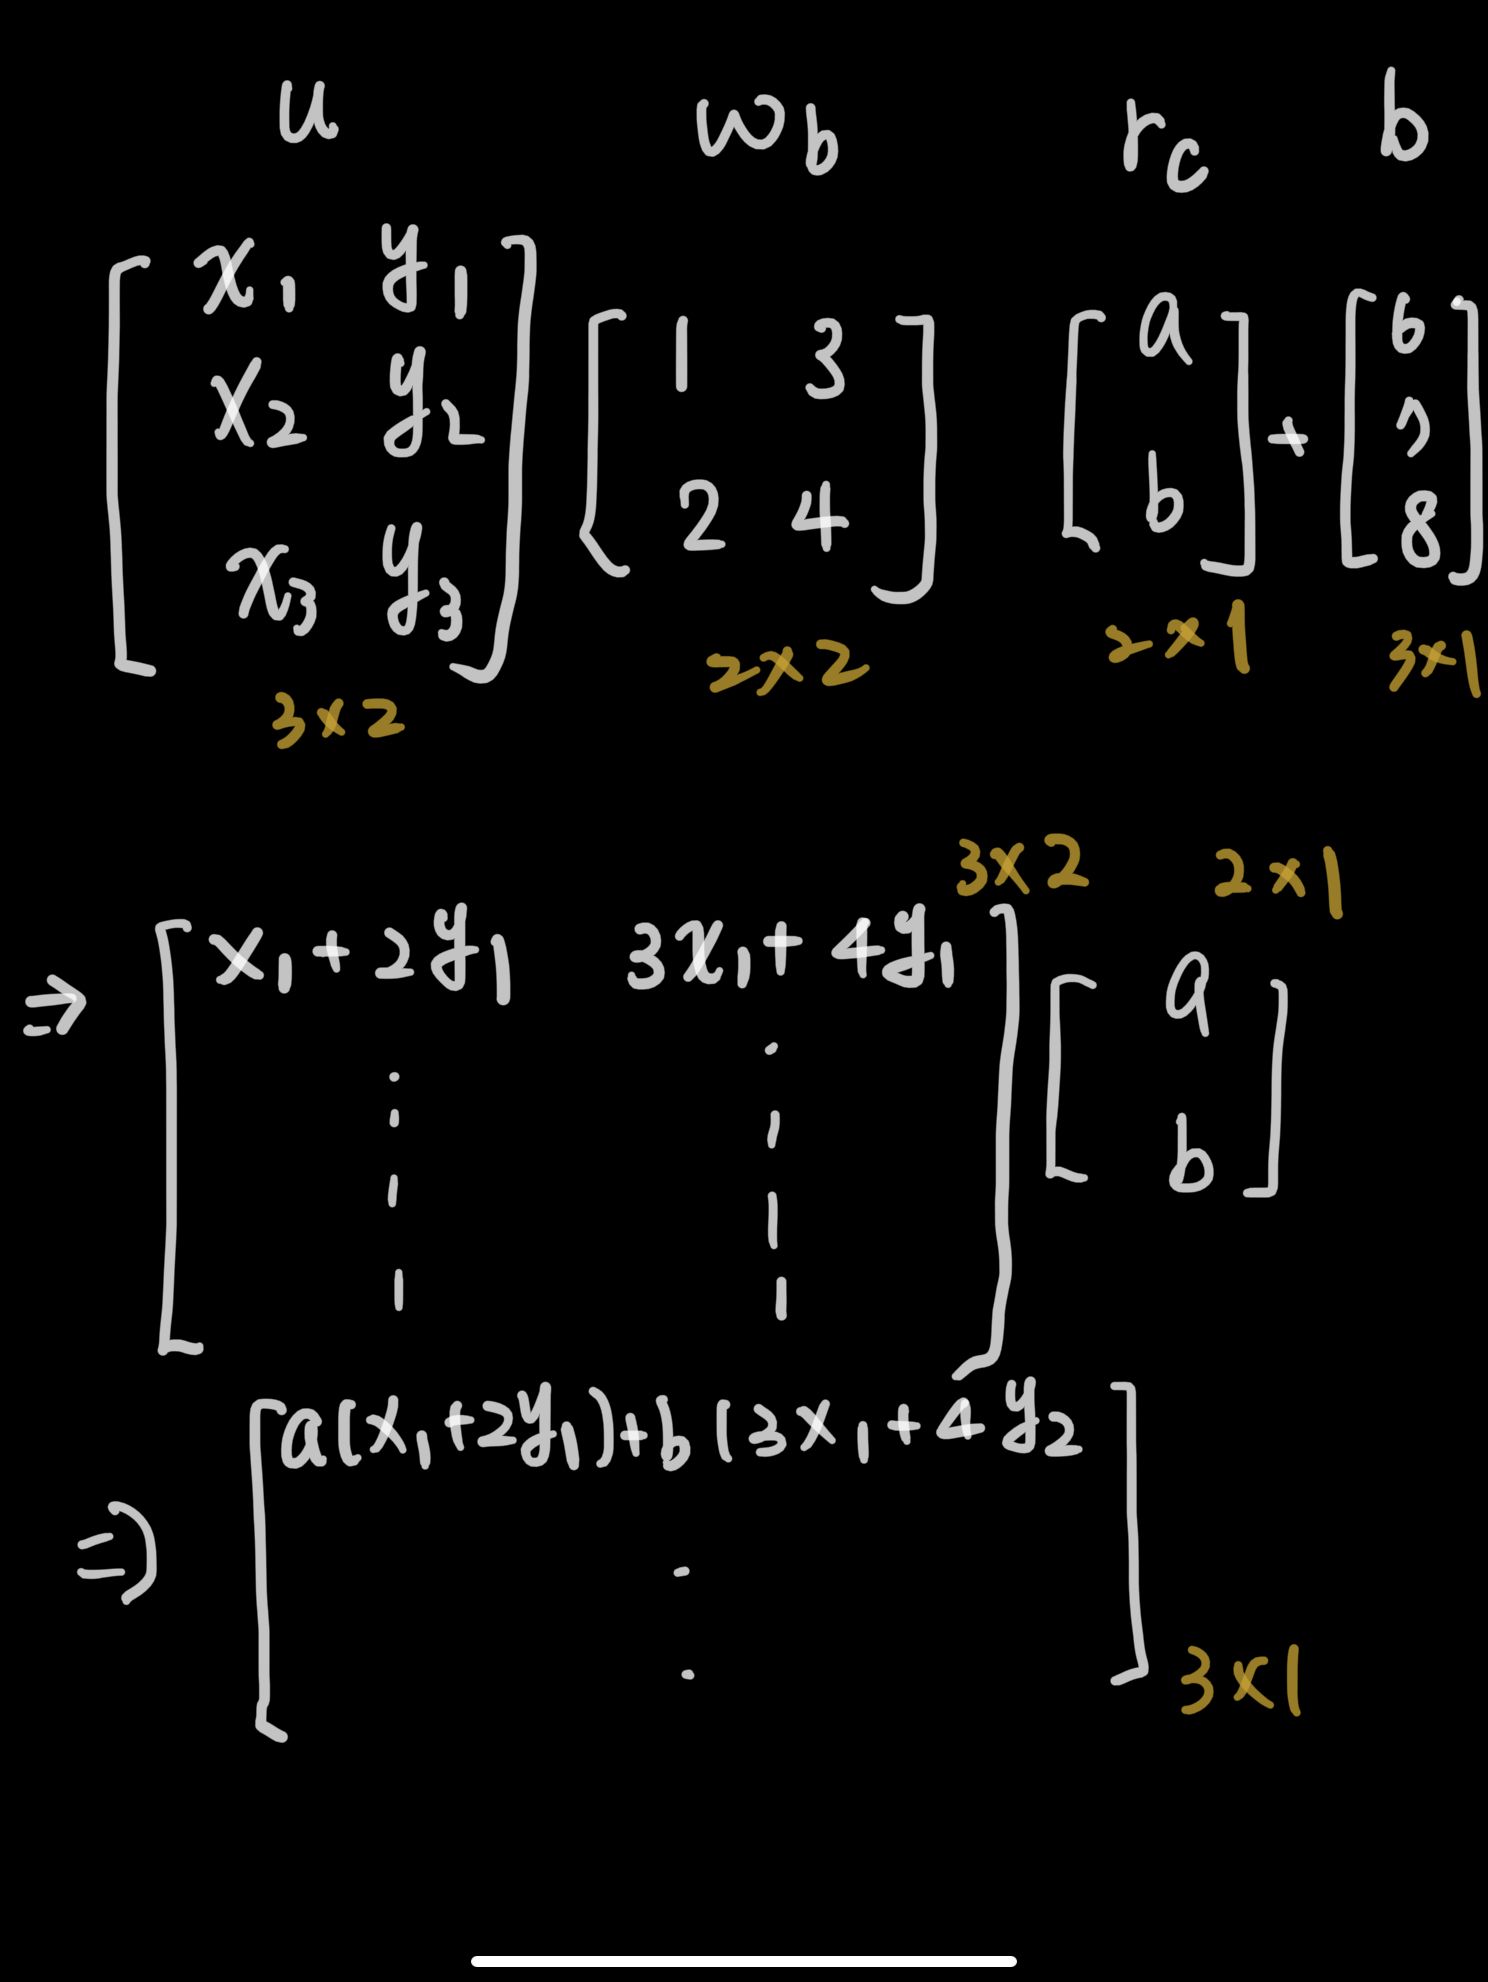 u w_b r_c b
[ x₁ y₁ ; x₂ y₂ ; x₃ y₃ ] [ 1 3 ; 2 4 ] [ a ; b ] + [ 6 ; 7 ; 8 ]
3×2 2×2 2×1 3×1
3×2 2×1
⇒ [ x₁+2y₁ 3x₁+4y₁ ; ⋮ ⋮ ] [ a ; b ]
⇒ [ a(x₁+2y₁)+b(3x₁+4y₂ ; ⋮ ] 3×1